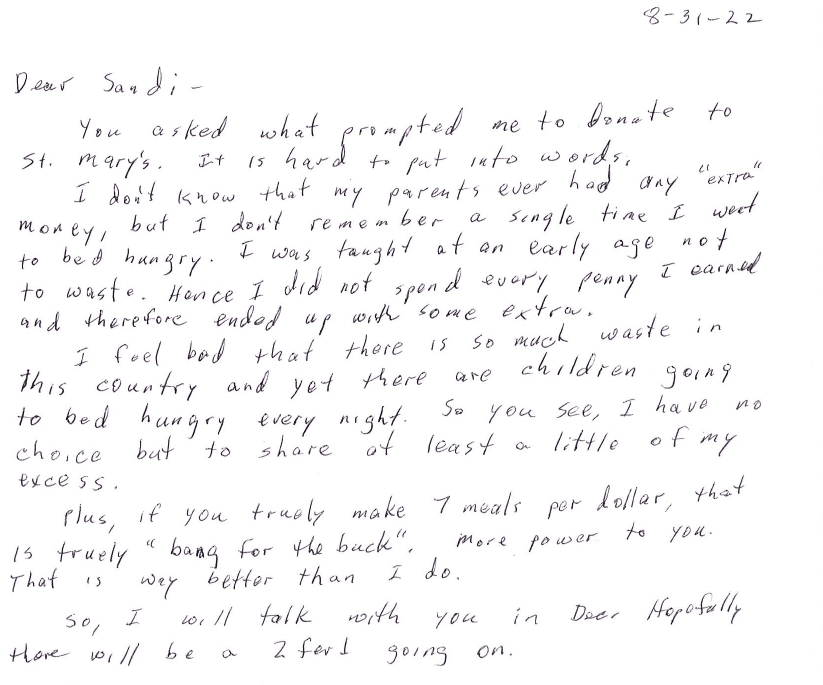 8-31-22
Dear Sandi -
You asked what prompted me to Donate to
St. Mary's. It is hard to put into words.
I don't know that my parents ever had any "extra"
money, but I don't remember a single time I went
to bed hungry. I was taught at an early age not
to waste. Hence I did not spend every penny I earned
and therefore ended up with some extra.
I feel bad that there is so much waste in
this country and yet there are children going
to bed hungry every night. So you see, I have no
choice but to share at least a little of my
excess.
Plus, if you truely make 7 meals per dollar, that
is truely "bang for the buck". More power to you.
That is way better than I do.
So, I will talk with you in Dec. Hopefully
there will be a 2 for 1 going on.